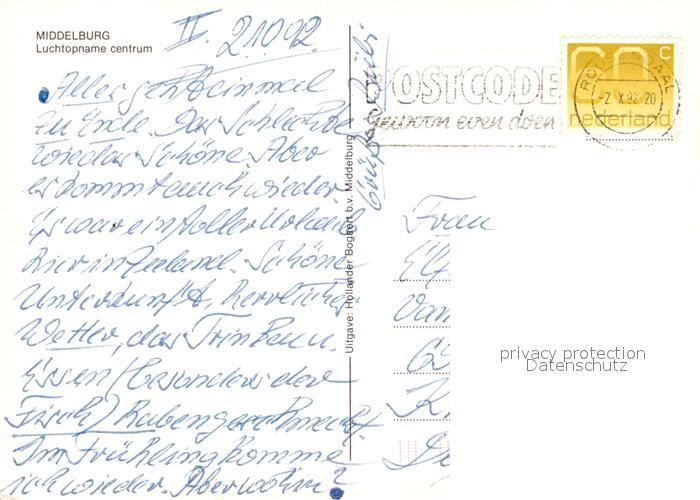 MIDDELBURG
Luchtopname centrum
II. 2.10.92
Alles geht einmal
zu Ende. Das Schlechte
wie das Schöne. Aber
es kommt auch wieder.
Es war ein toller Urlaub
hier in Zeeland. Schöne
Unterkunft, herrliches
Wetter, das Trinken u.
Essen (besonders der
Fisch) haben geschmeckt
Im Frühling komme
ich wieder. Aber wohin?
Gruß
Uitgave: Hollander Bogaert b.v. Middelburg
POSTCODE
even doen
-2.X.92-20
60 c
nederland
Frau
Elf
Van
privacy protection
Datenschutz